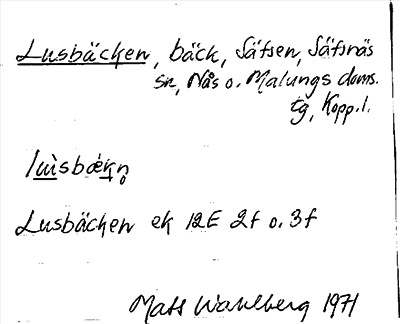 Lusbäcken, bäck, Säfsen, Säfsnäs
sn, Nås o. Malungs doms.
tg, Kopp. l.
Lusbäcken ek 12E 2f o. 3f
Mats Wahlberg 1971